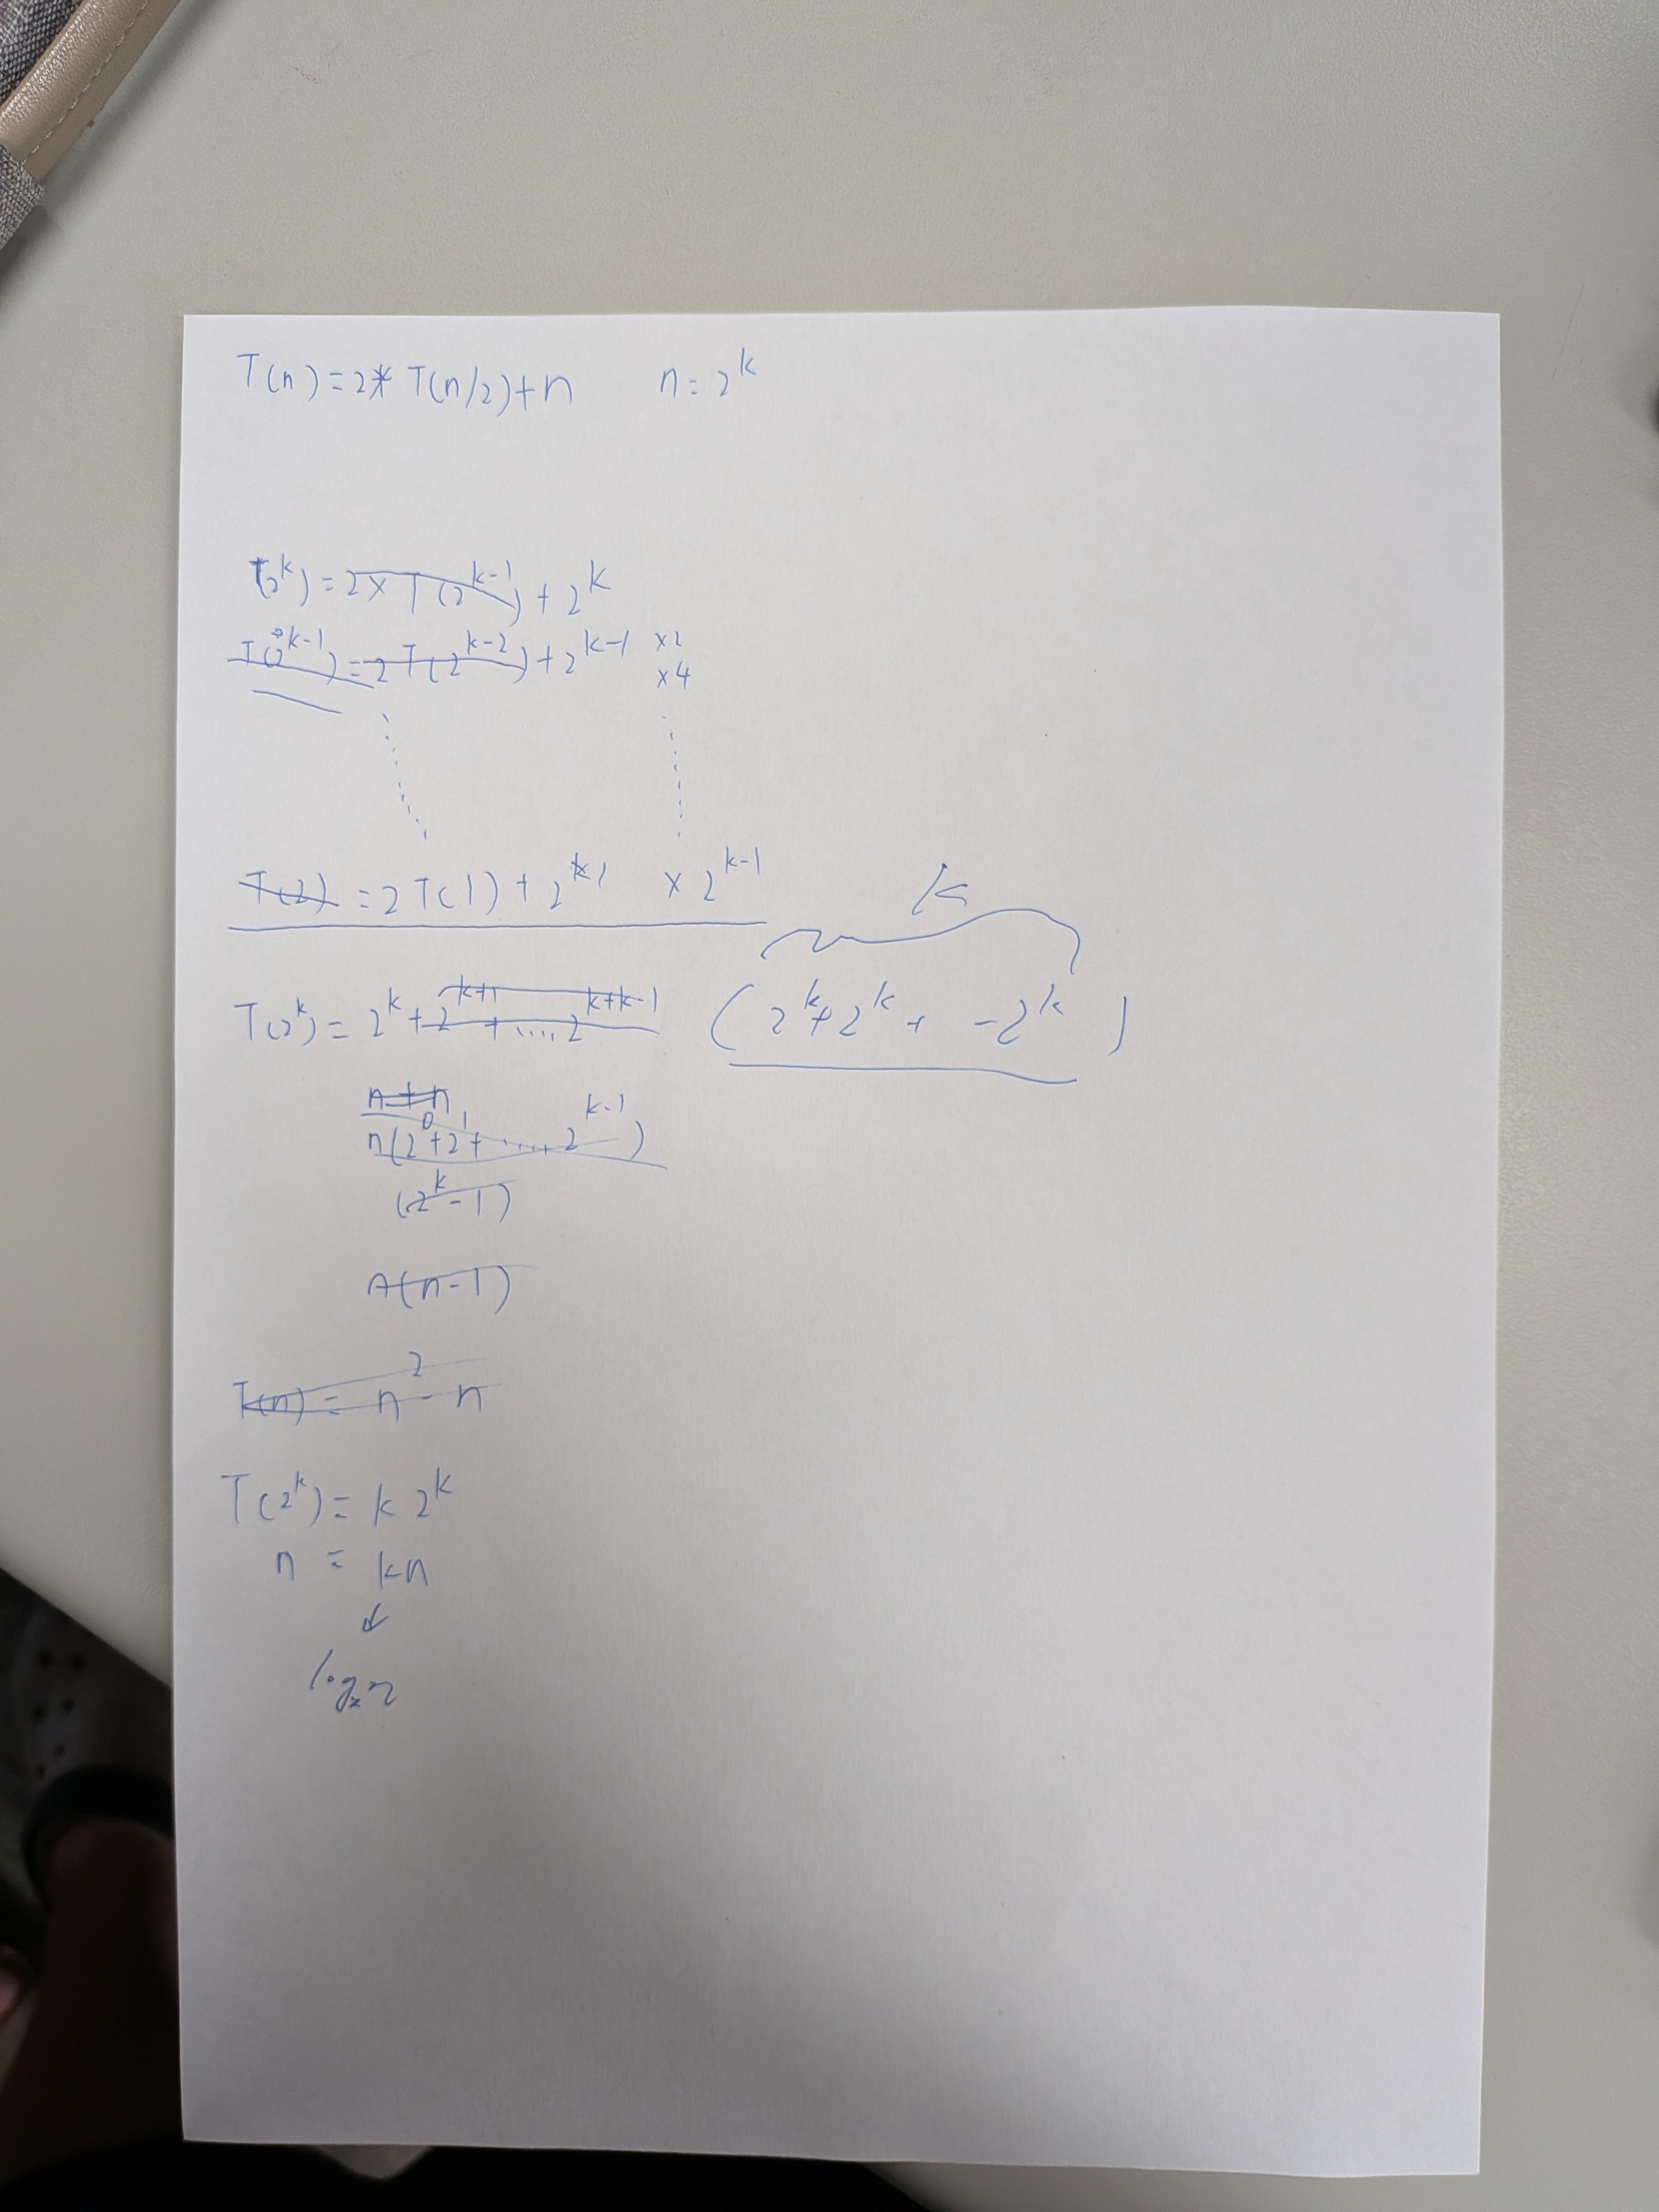 T(n)=2* T(n/2)+n    n=2^k
T(2^k)=2×T(2^k-1)+2^k
T(2^k-1)=2T(2^k-2)+2^k-1 ×2
×4
T(2)=2T(1)+2^1 ×2^k-1
k
T(2^k)=2^k+2^k+1+....2^k+k-1 (2^k+2^k+ -2^k)
n+n
n(2^0+2^1+.....2^k-1)
(2^k-1)
n(n-1)
T(n)=n^2-n
T(2^k)=k 2^k
n = kn
↓
log₂n